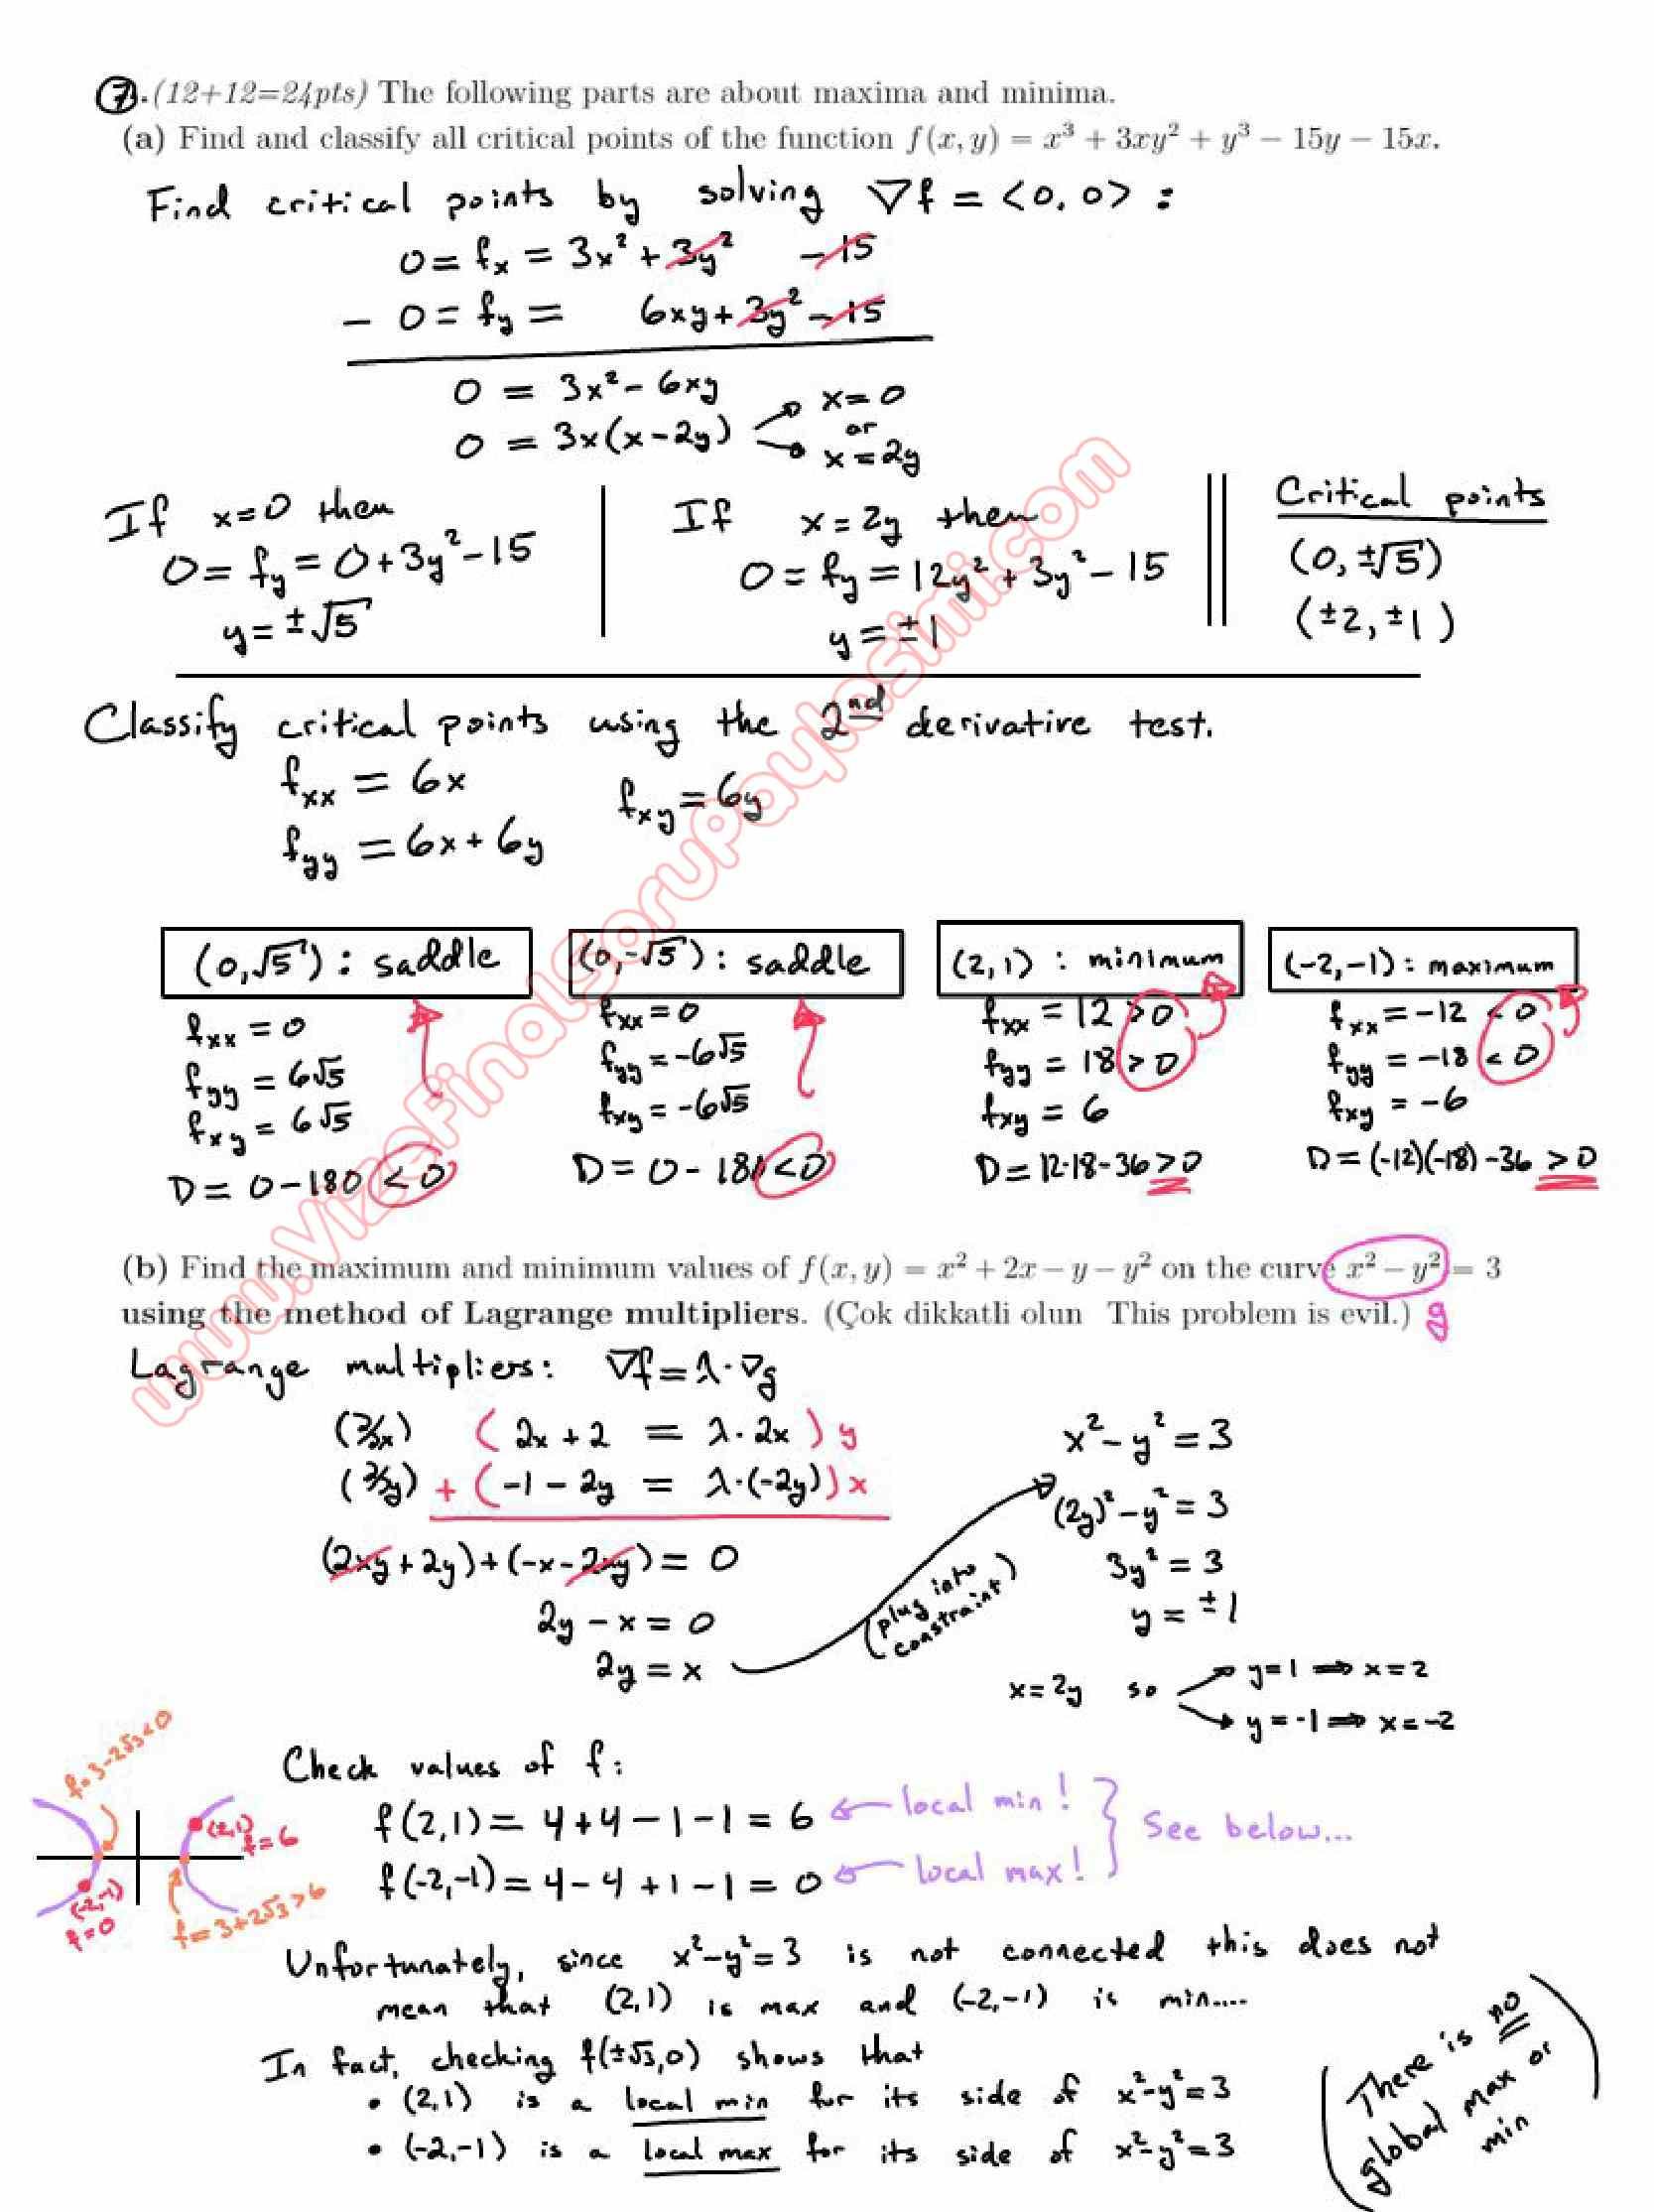 7.(12+12=24pts) The following parts are about maxima and minima.
(a) Find and classify all critical points of the function f(x, y) = x³ + 3xy² + y³ − 15y − 15x.
Find critical points by solving ∇f = <0,0> :
0 = fx = 3x² + 3y² − 15
− 0 = fy = 6xy + 3y² − 15
0 = 3x² − 6xy
0 = 3x(x − 2y)
x = 0
or
x = 2y
If x = 0 then
0 = fy = 0 + 3y² − 15
y = ±√5
If x = 2y then
0 = fy = 12y² + 3y² − 15
y = ±1
Critical points
(0, ±√5)
(±2, ±1)
Classify critical points using the 2nd derivative test.
fxx = 6x
fxy = 6y
fyy = 6x + 6y
(0, √5) : saddle
fxx = 0
fyy = 6√5
fxy = 6√5
D = 0 − 180 < 0
(0, −√5) : saddle
fxx = 0
fyy = −6√5
fxy = −6√5
D = 0 − 180 < 0
(2, 1) : minimum
fxx = 12 > 0
fyy = 18 > 0
fxy = 6
D = 12·18 − 36 > 0
(−2, −1) : maximum
fxx = −12 < 0
fyy = −18 < 0
fxy = −6
D = (−12)(−18) − 36 > 0
www.VizeFinalsorupaylasimi.com
(b) Find the maximum and minimum values of f(x, y) = x² + 2x − y − y² on the curve x² − y² = 3
using the method of Lagrange multipliers. (Çok dikkatli olun This problem is evil.) g
Lagrange multipliers: ∇f = λ·∇g
(∂/∂x) ( 2x + 2 = λ·2x ) y
(∂/∂y) + ( −1 − 2y = λ·(−2y) ) x
(2xy + 2y) + (−x − 2xy) = 0
2y − x = 0
2y = x
(plug into constraint)
x² − y² = 3
(2y)² − y² = 3
3y² = 3
y = ±1
x = 2y so
y = 1 ⇒ x = 2
y = −1 ⇒ x = −2
f = 3 − 2√3 < 0
(2,1)
f = 6
(−2,−1)
f = 0
f = 3 + 2√3 > 6
Check values of f :
f(2,1) = 4 + 4 − 1 − 1 = 6 ← local min!
f(−2,−1) = 4 − 4 + 1 − 1 = 0 ← local max!
See below...
Unfortunately, since x² − y² = 3 is not connected this does not
mean that (2,1) is max and (−2,−1) is min....
In fact, checking f(±√3,0) shows that
• (2,1) is a local min for its side of x² − y² = 3
• (−2,−1) is a local max for its side of x² − y² = 3
(There is no
global max or
min)